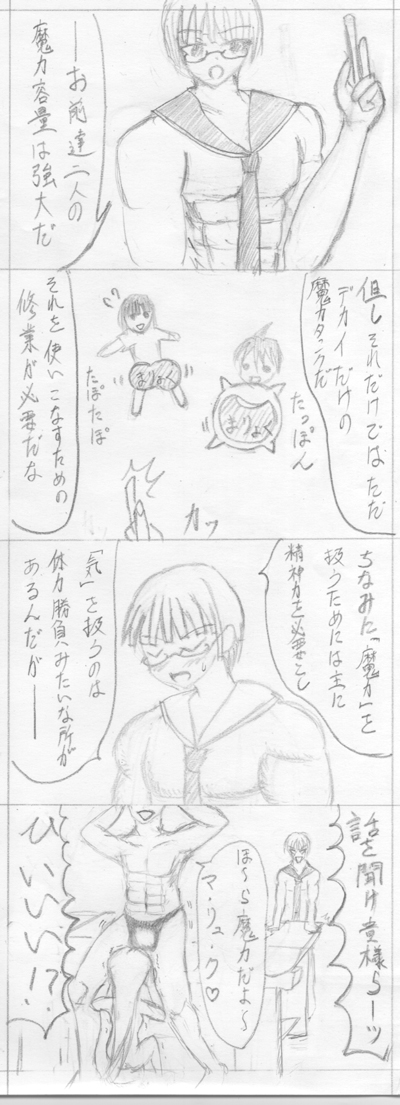 ――お前達二人の
魔力容量は強大だ
但しそれだけではただ
デカイだけの
魔力タンクだ
たっぽん
まりょく
まりょく
たぽたぽ
!?
それを使いこなすための
修業が必要だな
カッ
ちなみに「魔力」を
扱うためには主に
精神力を必要とし
「気」を扱うのは
体力勝負みたいな所が
あるんだが――
話を聞け貴様らーッ
ほ～ら魔力だよ～
マ・リョ・ク♡
ひいいい!?